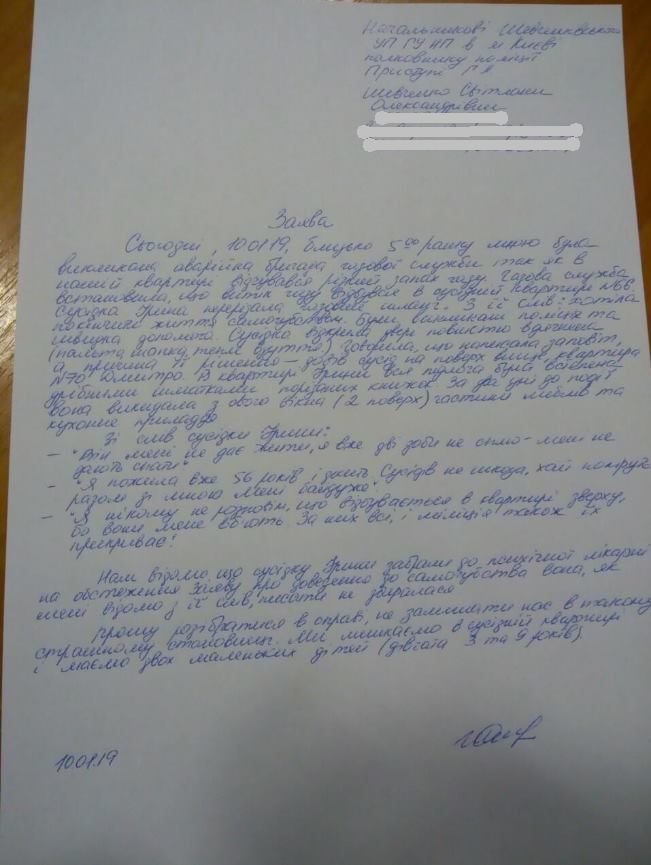 Начальникові Шевченківського
УП ГУ НП в м Києві
полковнику поліції
Приступі Г А
Шевченко Світлани
Олександрівни
Заява
Сьогодні, 10 01 19, близько 5 00 ранку мною була
викликана аварійна бригада газової служби так як в
нашій квартирі відчувався різкий запах газу. Газова служба
встановила, що витік газу відбувся в сусідній квартирі №66
Сусідка Ірина перерізала газовий шланг. З її слів хотіла
покінчити життя самогубством. Були викликані поліція та
швидка допомога. Сусідка відкрила двері повністю вдягнена
(пальто шапка, тепле взуття) говорила, що написала заповіт,
а причина її рішення — довів сусід на поверх вище, квартира
№70, Дмитро. В квартирі Ірини вся підлога була встелена
дрібними шматками порізаних книжок. За два дні до події
вона викидала з свого вікна (2 поверх) частини меблів та
кухонне приладдя
Зі слів сусідки Ірини:
- "Він мені не дає жити, я вже дві доби не сплю - мені не
дають спати"
- "Я пожила вже 56 років і досить. Сусідів не шкода, хай помруть
разом зі мною Мені байдуже"
- "Я нікому не розповім, що відбувається в квартирі зверху,
бо вони мене вб'ють. За них всі, і міліція також їх
прикриває!
Нам відомо, що сусідку Ірину забрали до психічної лікарні
на обстеження Заяву про доведення до самогубства вона, як
мені відомо з її слів, писати не збиралася
Прошу розібратися в справі, не залишати нас в такому
страшному становищі. Ми мешкаємо в сусідній квартирі
і маємо двох маленьких дітей (дівчата 3 та 9 років)
10 01.19